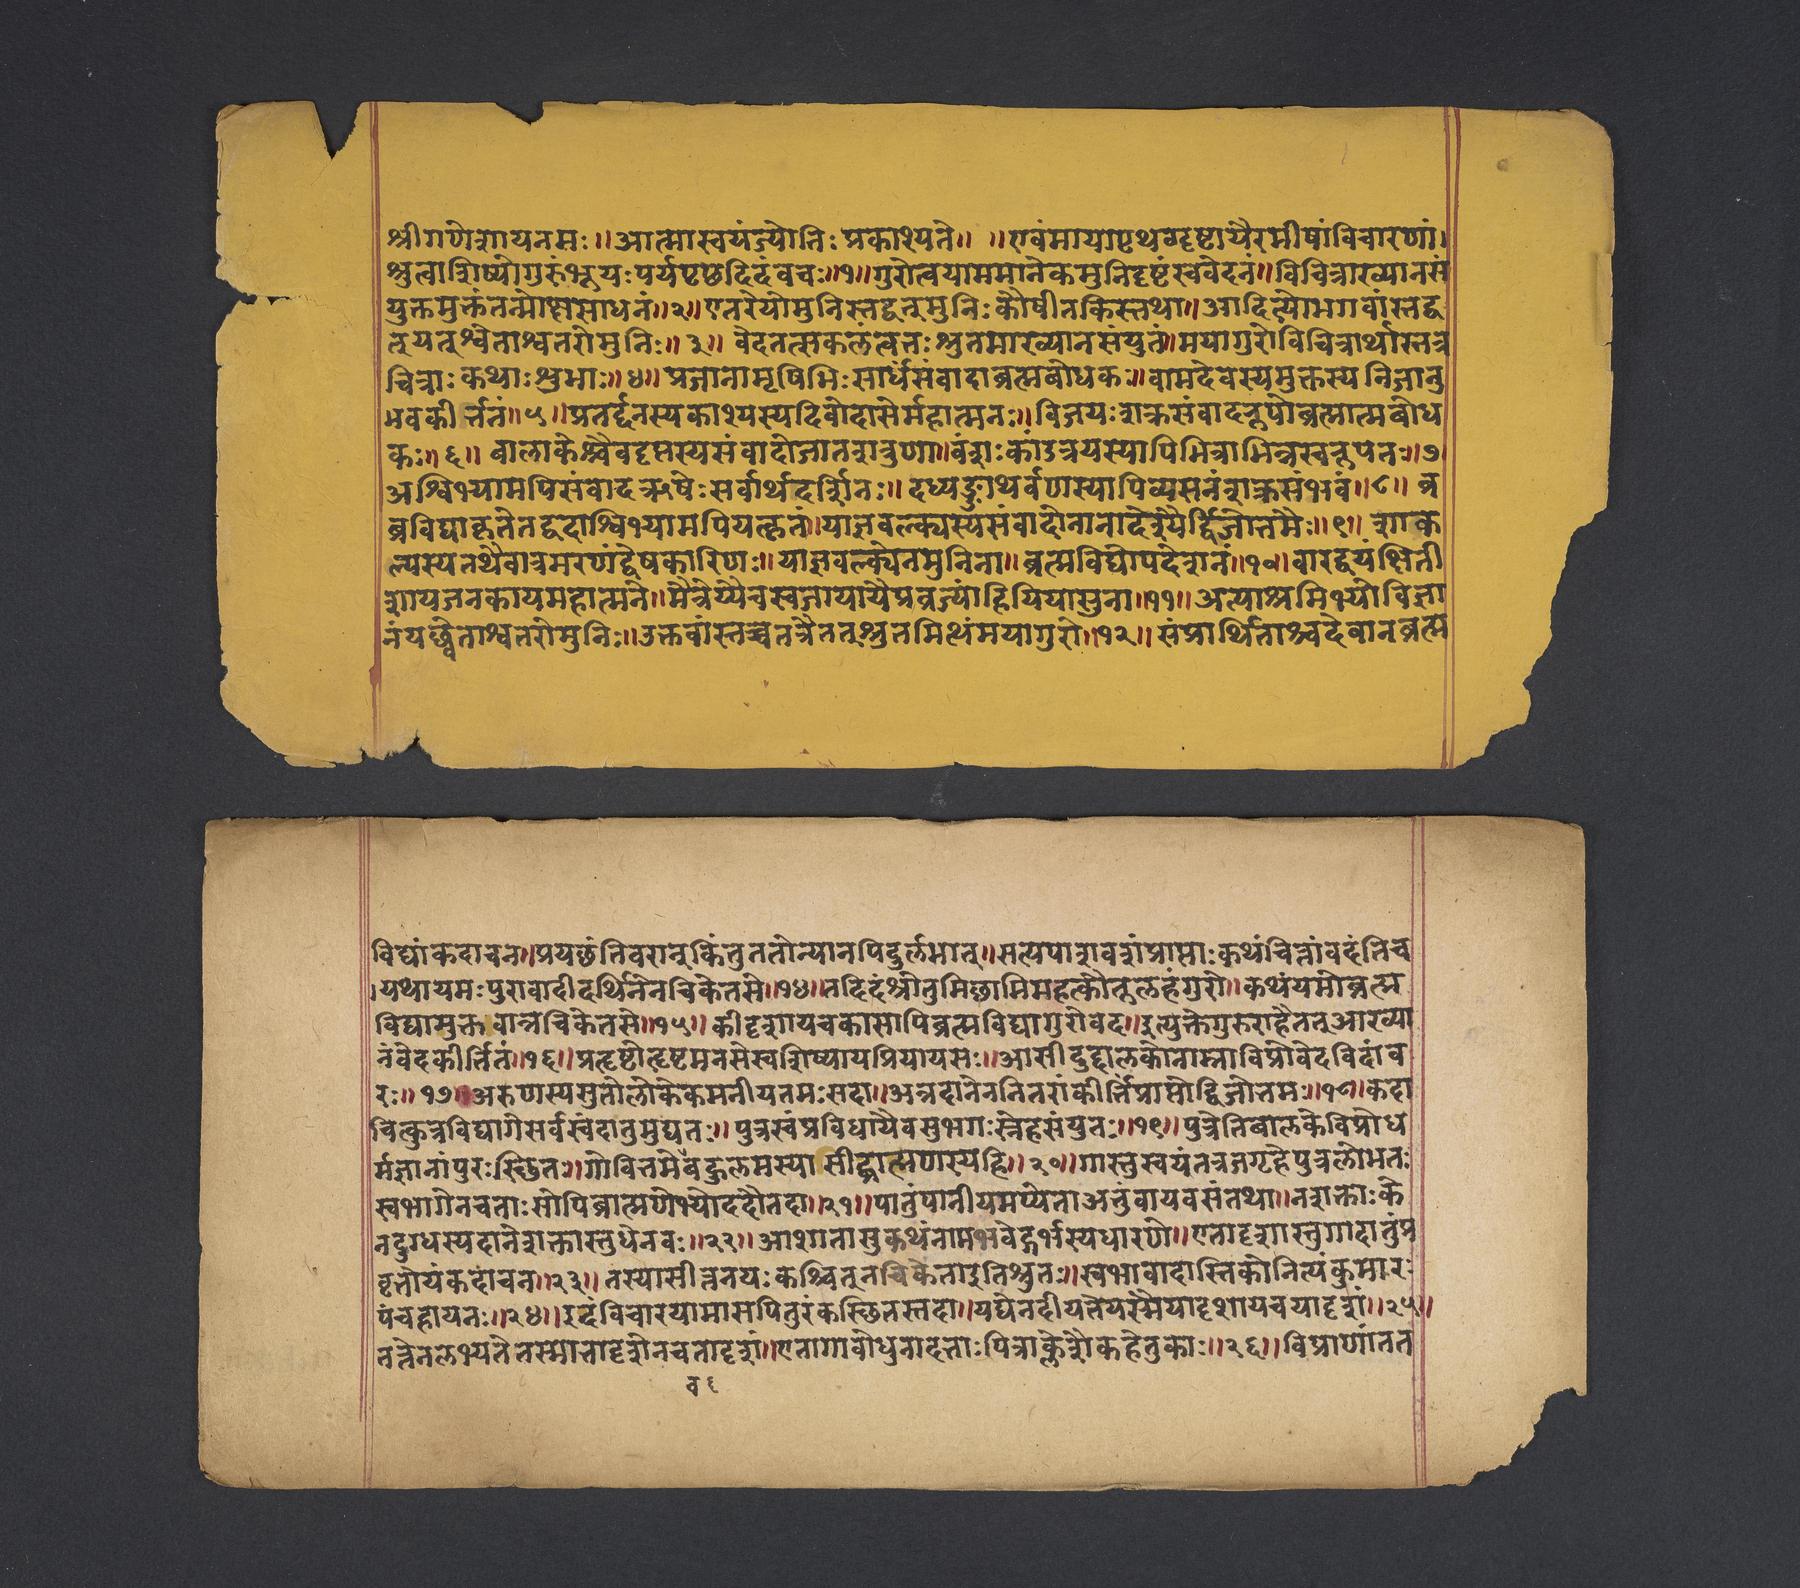 श्रीगणेशायनमः॥आत्मास्वयंज्योतिःप्रकाश्यते॥ ॥एवंमायापृथग्दृष्टायैरमीषांविचारणां।
श्रुत्वाशिष्योगुरुंभूयःपर्यपृछदिदंवचः॥१॥गुरोत्वयाममानेकमुनिदृष्टंस्ववेदनं॥विचित्राख्यानसं
युक्तमुक्तंतन्मोक्षसाधनं॥२॥एतरेयोमुनिस्तद्वत्मुनिःकौषीतकिस्तथा॥आदित्योभगवांस्तद्व
त्यत्श्वेताश्वतरोमुनिः॥३॥वेदतत्सकलंत्वत्तःश्रुतमाख्यानसंयुतं॥मयागुरोविचित्रार्थास्तत्र
चित्राःकथाःशुभाः॥४॥प्रजानामृषिभिःसार्धंसंवादाब्रह्मबोधकः॥वामदेवस्यमुक्तस्यनिजानु
भवकीर्त्तनं॥५॥प्रतर्द्दनस्यकाश्यस्यदिवोदासेर्महात्मनः॥विजयःशक्रसंवादरूपोब्रह्मात्मबोध
कः॥६॥बालाकेश्चैवदृप्तस्यसंवादोजातशत्रुणा॥वंशःकांडत्रयस्यापिभिन्नाभिन्नस्वरूपतः॥७
अश्विभ्यामपिसंवादऋषेःसर्वार्थदर्शिनः॥दध्यङ्ङाथर्वणस्यापिव्यसनंशक्रसंभवं॥८॥ब्र
ह्मविद्याकृतेतद्वदाश्विभ्यामपियत्कृतं॥याज्ञवल्क्यस्यसंवादोनानादेश्यैर्द्विजोत्तमैः॥९॥शाक
ल्यस्यतथैवात्रमरणंद्वेषकारिणः॥याज्ञवल्क्येनमुनिना॥ब्रह्मविद्योपदेशनं॥१०॥वारद्वयंक्षिती
शायजनकायमहात्मने॥मैत्रेय्यैचस्वजायायैप्रव्रज्यांहियियासुना॥११॥अत्याश्रमिभ्योविज्ञा
नंयछ्वेताश्वतरोमुनिः॥उक्तवांस्तच्चतत्रैतत्श्रुतमित्थंमयागुरो॥१२॥संप्रार्थिताश्चदेवानब्रह्म
विद्यांकदाचन॥प्रयछंतिवरान्किंतुततोन्यानपिदुर्लभान्॥सत्यपाशवशंप्राप्ताःकथंचित्तांवदंतिच
।यथायमःपुरावादीदर्थितेनचिकेतसे॥१४॥तदिदंश्रोतुमिछामिमहत्कौतूहलंगुरो॥कथंयमोब्रह्म
विद्यामुक्तवान्नचिकेतसे॥१५॥कीदृशायचकासापिब्रह्मविद्यागुरोवद॥इत्युक्तेगुरुराहैतत्आख्या
नंवेदकीर्त्तितं॥१६॥प्रत्दृष्टोत्दृष्टमनसेस्वशिष्यायप्रियायसः॥आसीदुद्दालकोनाम्नाविप्रोवेदविदांव
रः॥१७॥अरुणस्यसुतोलोकेकमनीयतमःसदा॥अन्नदानेनतितरांकीर्त्तिंप्राप्तोद्विजोत्तमः॥१८॥कदा
चित्कुत्रविद्यागेसर्वस्वंदातुमुद्यतः॥पुत्रस्वंप्रविधायैवसुभगःस्नेहसंयुतः॥१९॥पुत्रेतिबालकेविप्रोध
र्मज्ञानांपुरःस्छितः॥गोवित्तमेवंकुलमस्यासीद्ब्राह्मणस्यहि॥२०॥गास्तुस्वयंतत्रजगृहेपुत्रलोभतः
स्वभागेनचताःसोपिब्राह्मणेभ्योददौतदा॥२१॥पातुंपानीयमप्येताअत्तुंवायवसंतथा॥नशक्ताःके
नदुग्धस्यदानेशक्तास्तुधेनवः॥२२॥आशगतासुकथंनामभवेद्गर्भस्यधारणे॥एतादृशास्तुगादातुंप्र
वृत्तोयंकदाचन॥२३॥तस्यासीत्तनयःकश्चित्नचिकेताइतिश्रुतः॥स्वभावादास्तिकोनित्यंकुमारः
पंचहायनः॥२४॥इदंविचारयामासपितुरंकस्छितस्तदा॥यद्येनदीयतेयस्मैयादृशायचयादृशं॥२५॥
तत्तेनलभ्यतेतस्मात्तादृशेनचतादृशं॥एतागावोधुनादत्ताःपित्राक्लेशैकहेतुकाः॥२६॥विप्राणांतत
व६